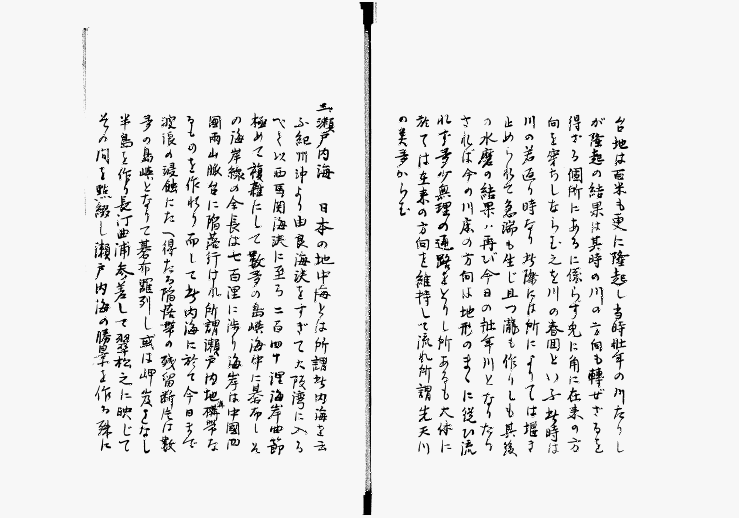 台地は百米も更に隆起し当時壮年の川なりし
が隆起の結果は其時の川の方向も轉ぜざるを
得ざる個所にあるに係らず兎に角に在来の方
向を穿ちしならむ之を川の春回といふ此時は
川の若返り時なり此際には所によりては堰き
止められて急湍も生じ且つ瀧も作りしも其後
の水磨の結果ハ再び今日の壮年川となりたり
されば今の川床の方向は地形のまゝに従ひ流
れず多少無理の通路をとりし所あるも大体に
於ては在来の方向を維持して流れ所謂先天川
の美多からむ
瀬戸内海 日本の地中海とは所謂此内海を云
ふ紀州沖より由良海峡をすぎて大阪湾に入る
べく以西馬関海峡に至る二百四十浬海岸曲節
極めて複雑にして数多の島嶼海中に碁布しそ
の海岸線の全長は七百浬に渉り海岸は中國四
國両山脈台に陥落行はれ所謂瀬戸内地構帯な
るものを作れり而して此内海に於て今日まで
波浪の浸蝕にたへ得たる陥落帯の残留断片は数
多の島嶼となりて碁布羅列し或は岬岌をなし
半島を作り長汀曲浦参差して翠松之に映じて
その間を點綴し瀬戸内海の勝景を作る殊に